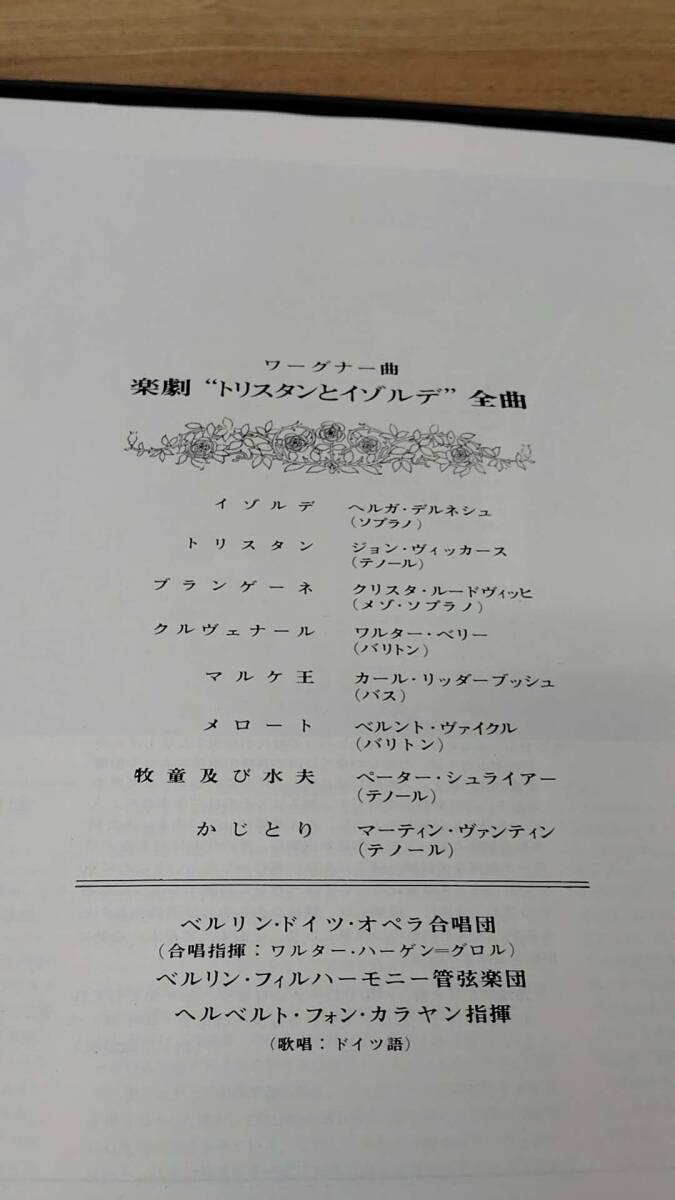 ワーグナー曲
楽劇 “トリスタンとイゾルデ” 全曲
イゾルデ ヘルガ・デルネシュ
(ソプラノ)
トリスタン ジョン・ヴィッカース
(テノール)
ブランゲーネ クリスタ・ルードヴィッヒ
(メゾ・ソプラノ)
クルヴェナール ワルター・ベリー
(バリトン)
マルケ王 カール・リッダーブッシュ
(バス)
メロート ベルント・ヴァイクル
(バリトン)
牧童及び水夫 ペーター・シュライアー
(テノール)
かじとり マーティン・ヴァンティン
(テノール)
ベルリン・ドイツ・オペラ合唱団
(合唱指揮:ワルター・ハーゲン=グロル)
ベルリン・フィルハーモニー管弦楽団
ヘルベルト・フォン・カラヤン指揮
(歌唱:ドイツ語)